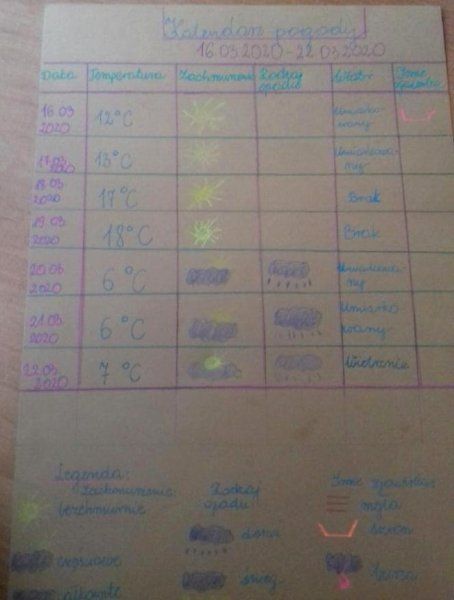 Kalendarz pogody
16.03.2020-22.03.2020
Data Temperatura Zachmurzenie Rodzaj opadu Wiatr Inne
16.03 2020 12°C Umiarko wany
17.03 2020 13°C Umiarkowa- ny
18.03 2020 17°C Brak
19.03 2020 18°C Brak
20.03 2020 6°C Umiarkowa- ny
21.03 2020 6°C Umiarko wany
22.03 2020 7°C
Legenda:
Zachmurzenie: Rodzaj opadu Inne zjawiska
bezchmurnie mgła
szron
częściowe śnieg burza